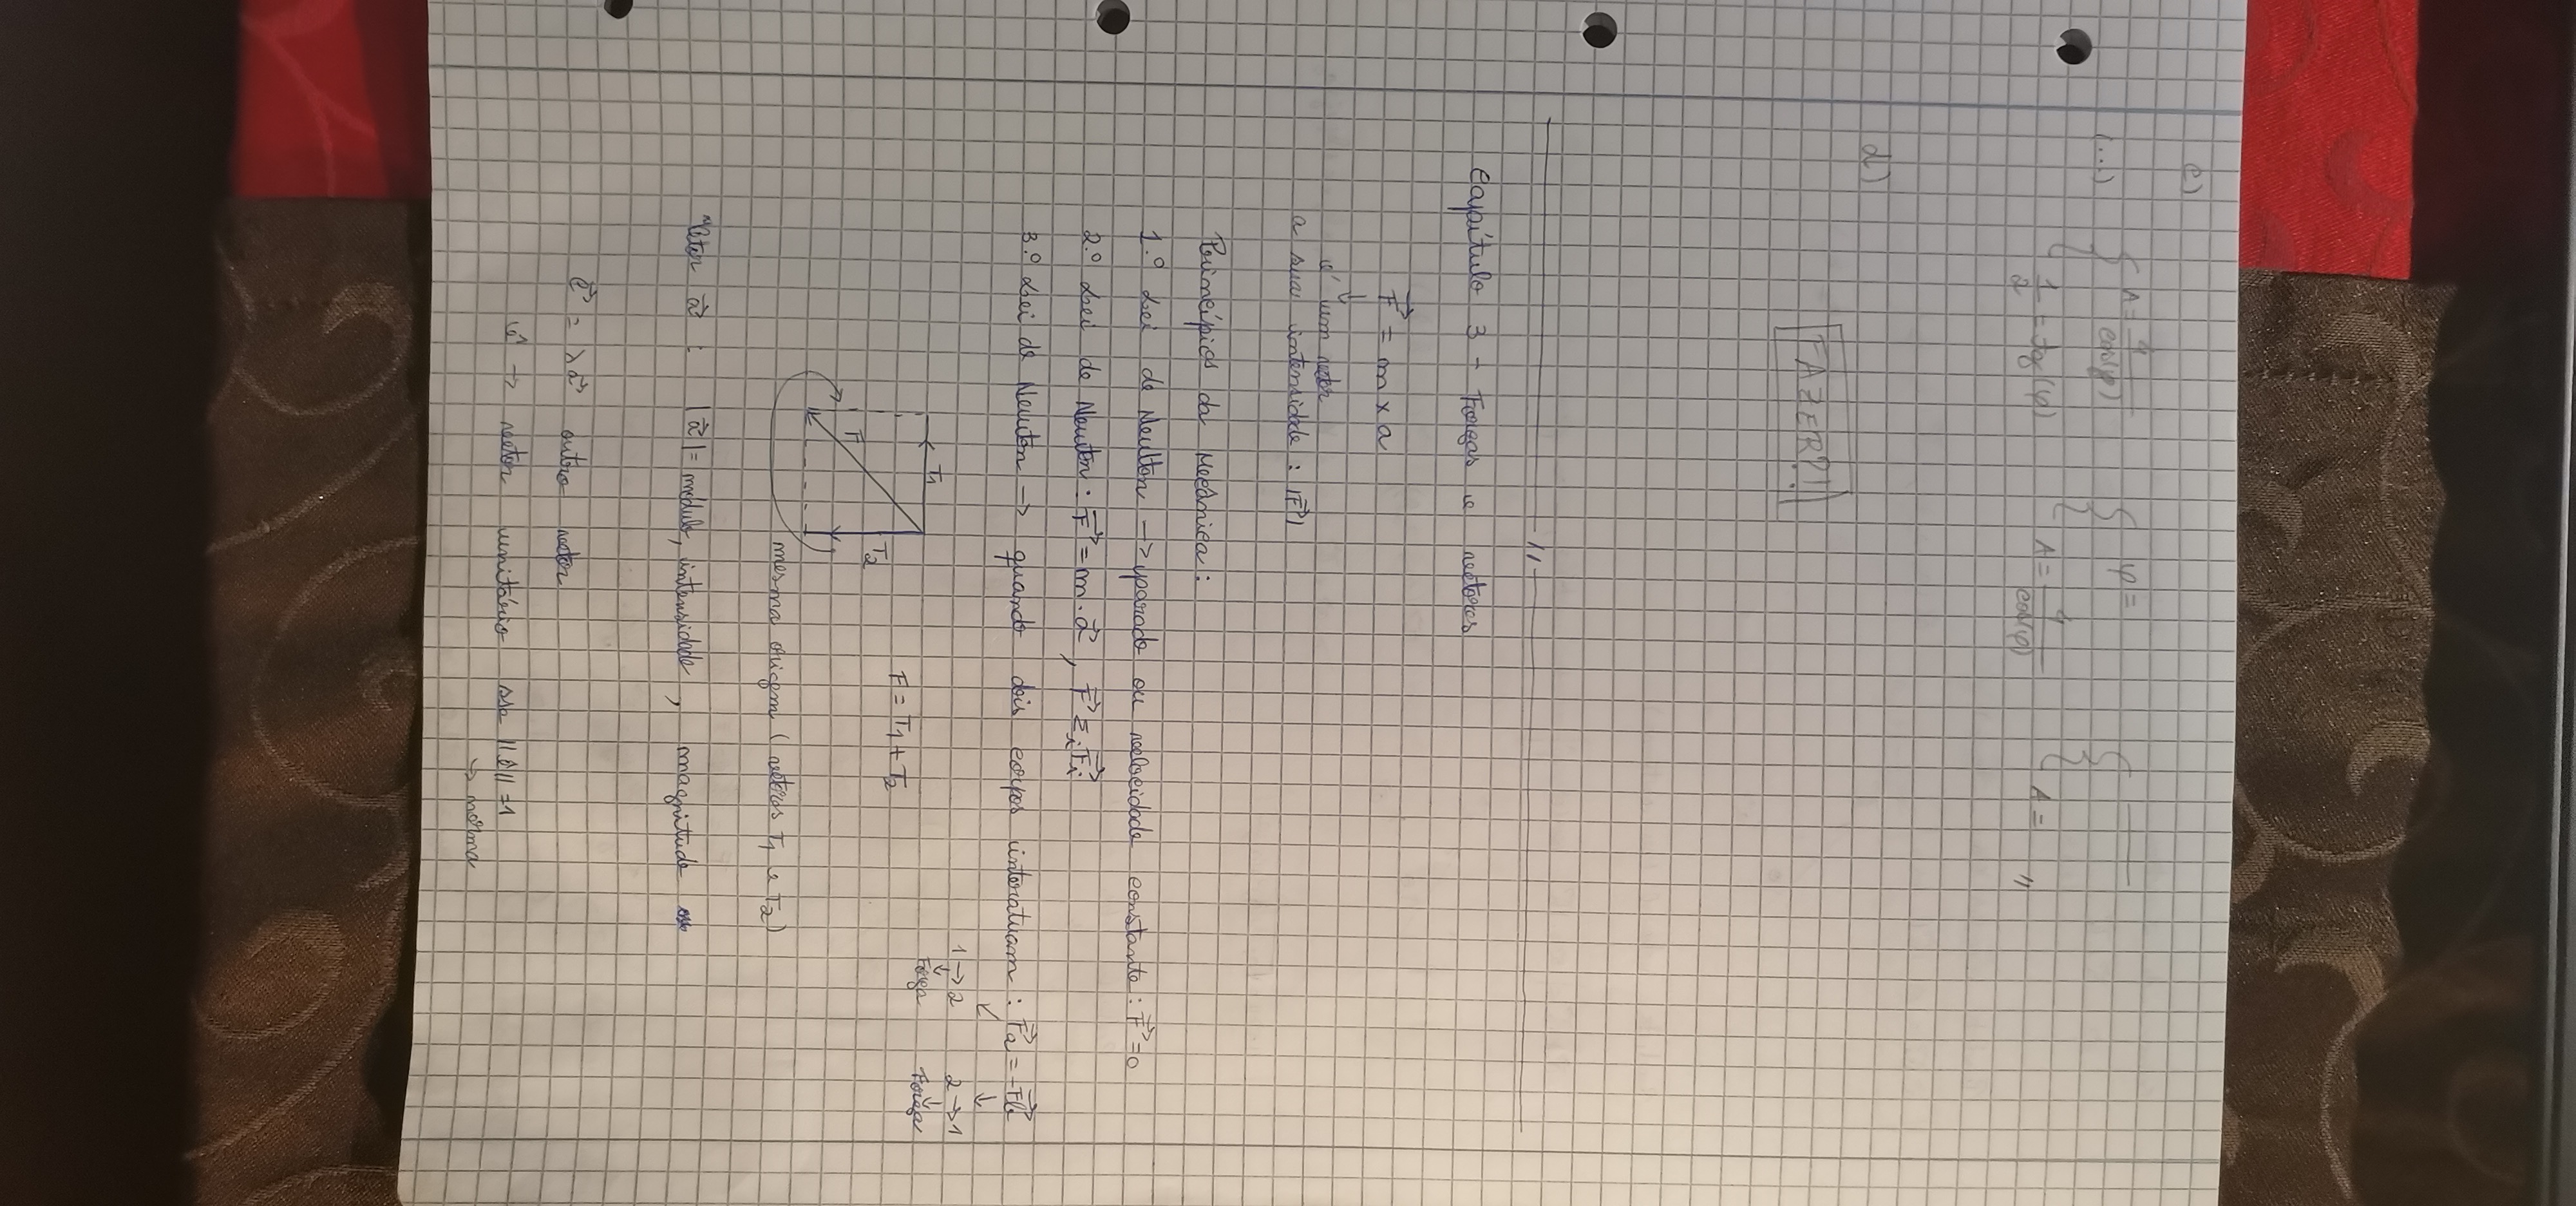 c)
(...) { A = 4/cos(φ) { φ = {
{ 1/2 = tg(φ) { A = 4/cos(φ) { A = "
d)
FAZER?!
"
Capítulo 3 - Forças e vetores
F⃗ = m × a
↓
é um vetor
a sua intensidade: |F⃗|
Princípios da Mecânica:
1.º Lei de Newton -> parado ou velocidade constante: F⃗ = 0
2.º Lei de Newton: F⃗ = m . a⃗, F⃗ Σᵢ F⃗ᵢ
3.º Lei de Newton -> quando dois corpos interatuam: F⃗a = -F⃗b
1 -> 2 2 -> 1
↓ ↓
Força Força
T1
F T2 F = T1 + T2
mesma origem (vetores T1 e T2)
Vetor a⃗ : |a⃗| = módulo, intensidade, magnitude
c⃗ = λa⃗ outro vetor
-> vetor unitário sse ||b̂|| = 1
↳ norma